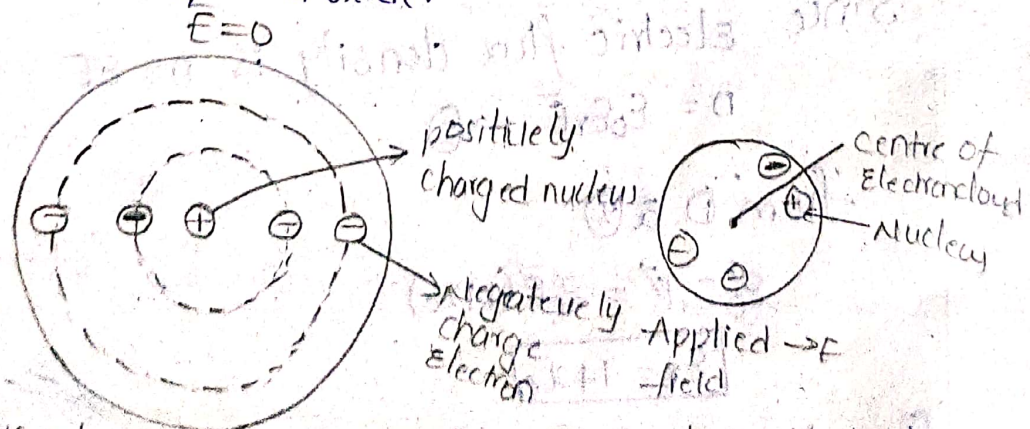 E=0
positively
charged nucleus
Negatively
charge
Electron
centre of
Electroncloud
Nucleus
Applied → E
field